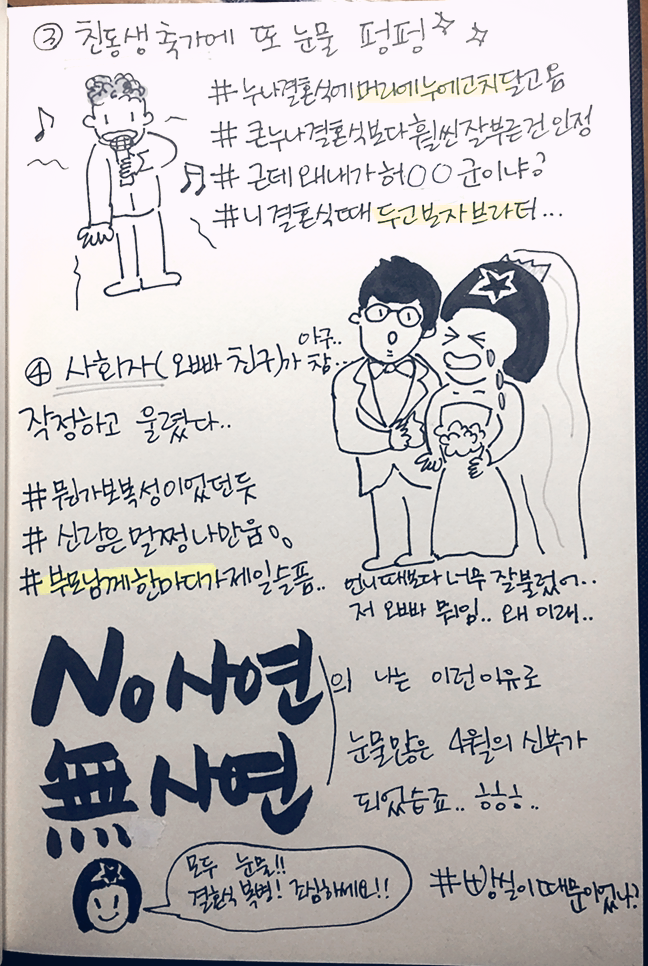 ③ 친동생 축가에 또 눈물 펑펑
# 누나결혼식에 머리에 누에고치 달고 옴
# 큰누나결혼식보다 훨씬 잘부른건 인정
# 근데 왜 내가 허○○ 군이냐?
# 니 결혼식때 두고보자 브라더...
④ 사회자(오빠 친구)가
작정하고 울렸다..
아구..
참...
# 뭔가 보복성이었던듯
# 신랑은 멀쩡 나만 움
# 부모님께 한마디가 제일 슬픔..
언니때보다 너무 잘불렀어..
저 오빠 뭐임.. 왜 이래..
No 사연
無 사연
의 나는 이런이유로
눈물많은 4월의 신부가
되었습죠.. 흐흐흐..
모두 눈물!!
결혼식 복병! 조심하세요!!
# 빵실이 때문이었나?